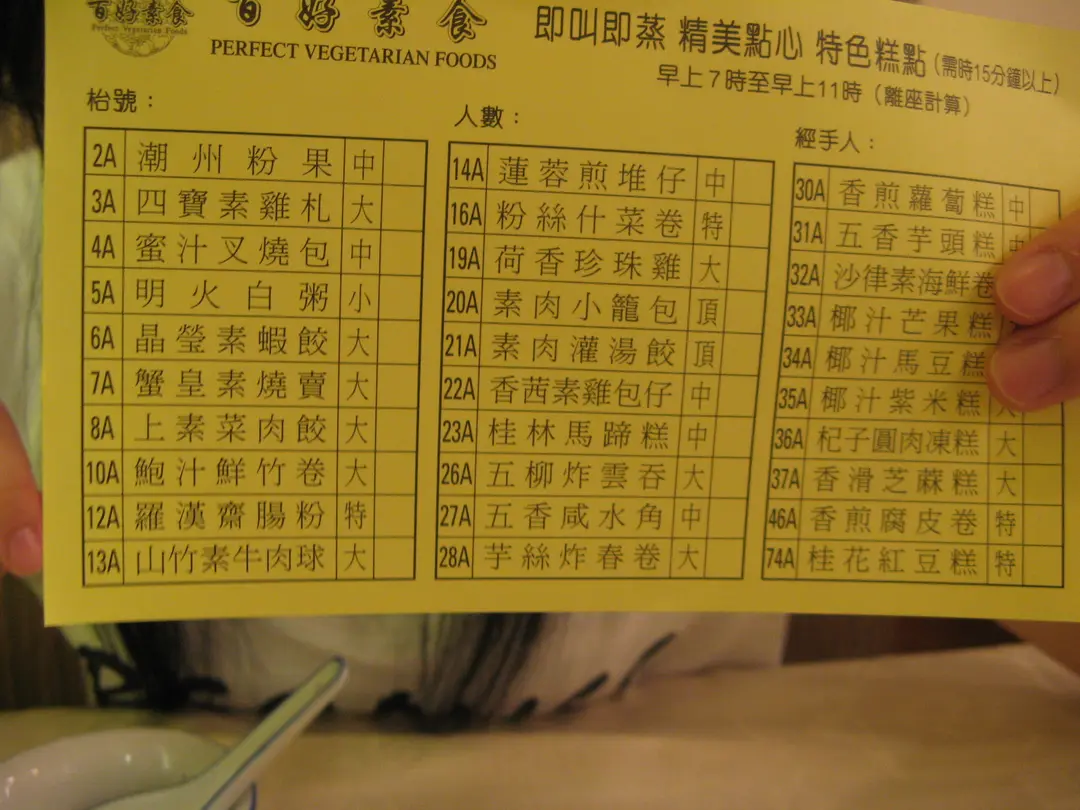 百好素食
Perfect Vegetarian Foods
百好素食
PERFECT VEGETARIAN FOODS
即叫即蒸 精美點心 特色糕點 (需時15分鐘以上)
早上7時至早上11時 (離座計算)
枱號：
2A 潮州粉果 中
3A 四寶素雞札 大
4A 蜜汁叉燒包 中
5A 明火白粥 小
6A 晶瑩素蝦餃 大
7A 蟹皇素燒賣 大
8A 上素菜肉餃 大
10A 鮑汁鮮竹卷 大
12A 羅漢齋腸粉 特
13A 山竹素牛肉球 大
人數：
14A 蓮蓉煎堆仔 中
16A 粉絲什菜卷 特
19A 荷香珍珠雞 大
20A 素肉小籠包 頂
21A 素肉灌湯餃 頂
22A 香茜素雞包仔 中
23A 桂林馬蹄糕 中
26A 五柳炸雲吞 大
27A 五香咸水角 中
28A 芋絲炸春卷 大
經手人：
30A 香煎蘿蔔糕 中
31A 五香芋頭糕 中
32A 沙律素海鮮卷
33A 椰汁芒果糕
34A 椰汁馬豆糕
35A 椰汁紫米糕 大
36A 杞子圓肉凍糕 大
37A 香滑芝蔴糕 大
46A 香煎腐皮卷 特
74A 桂花紅豆糕 特